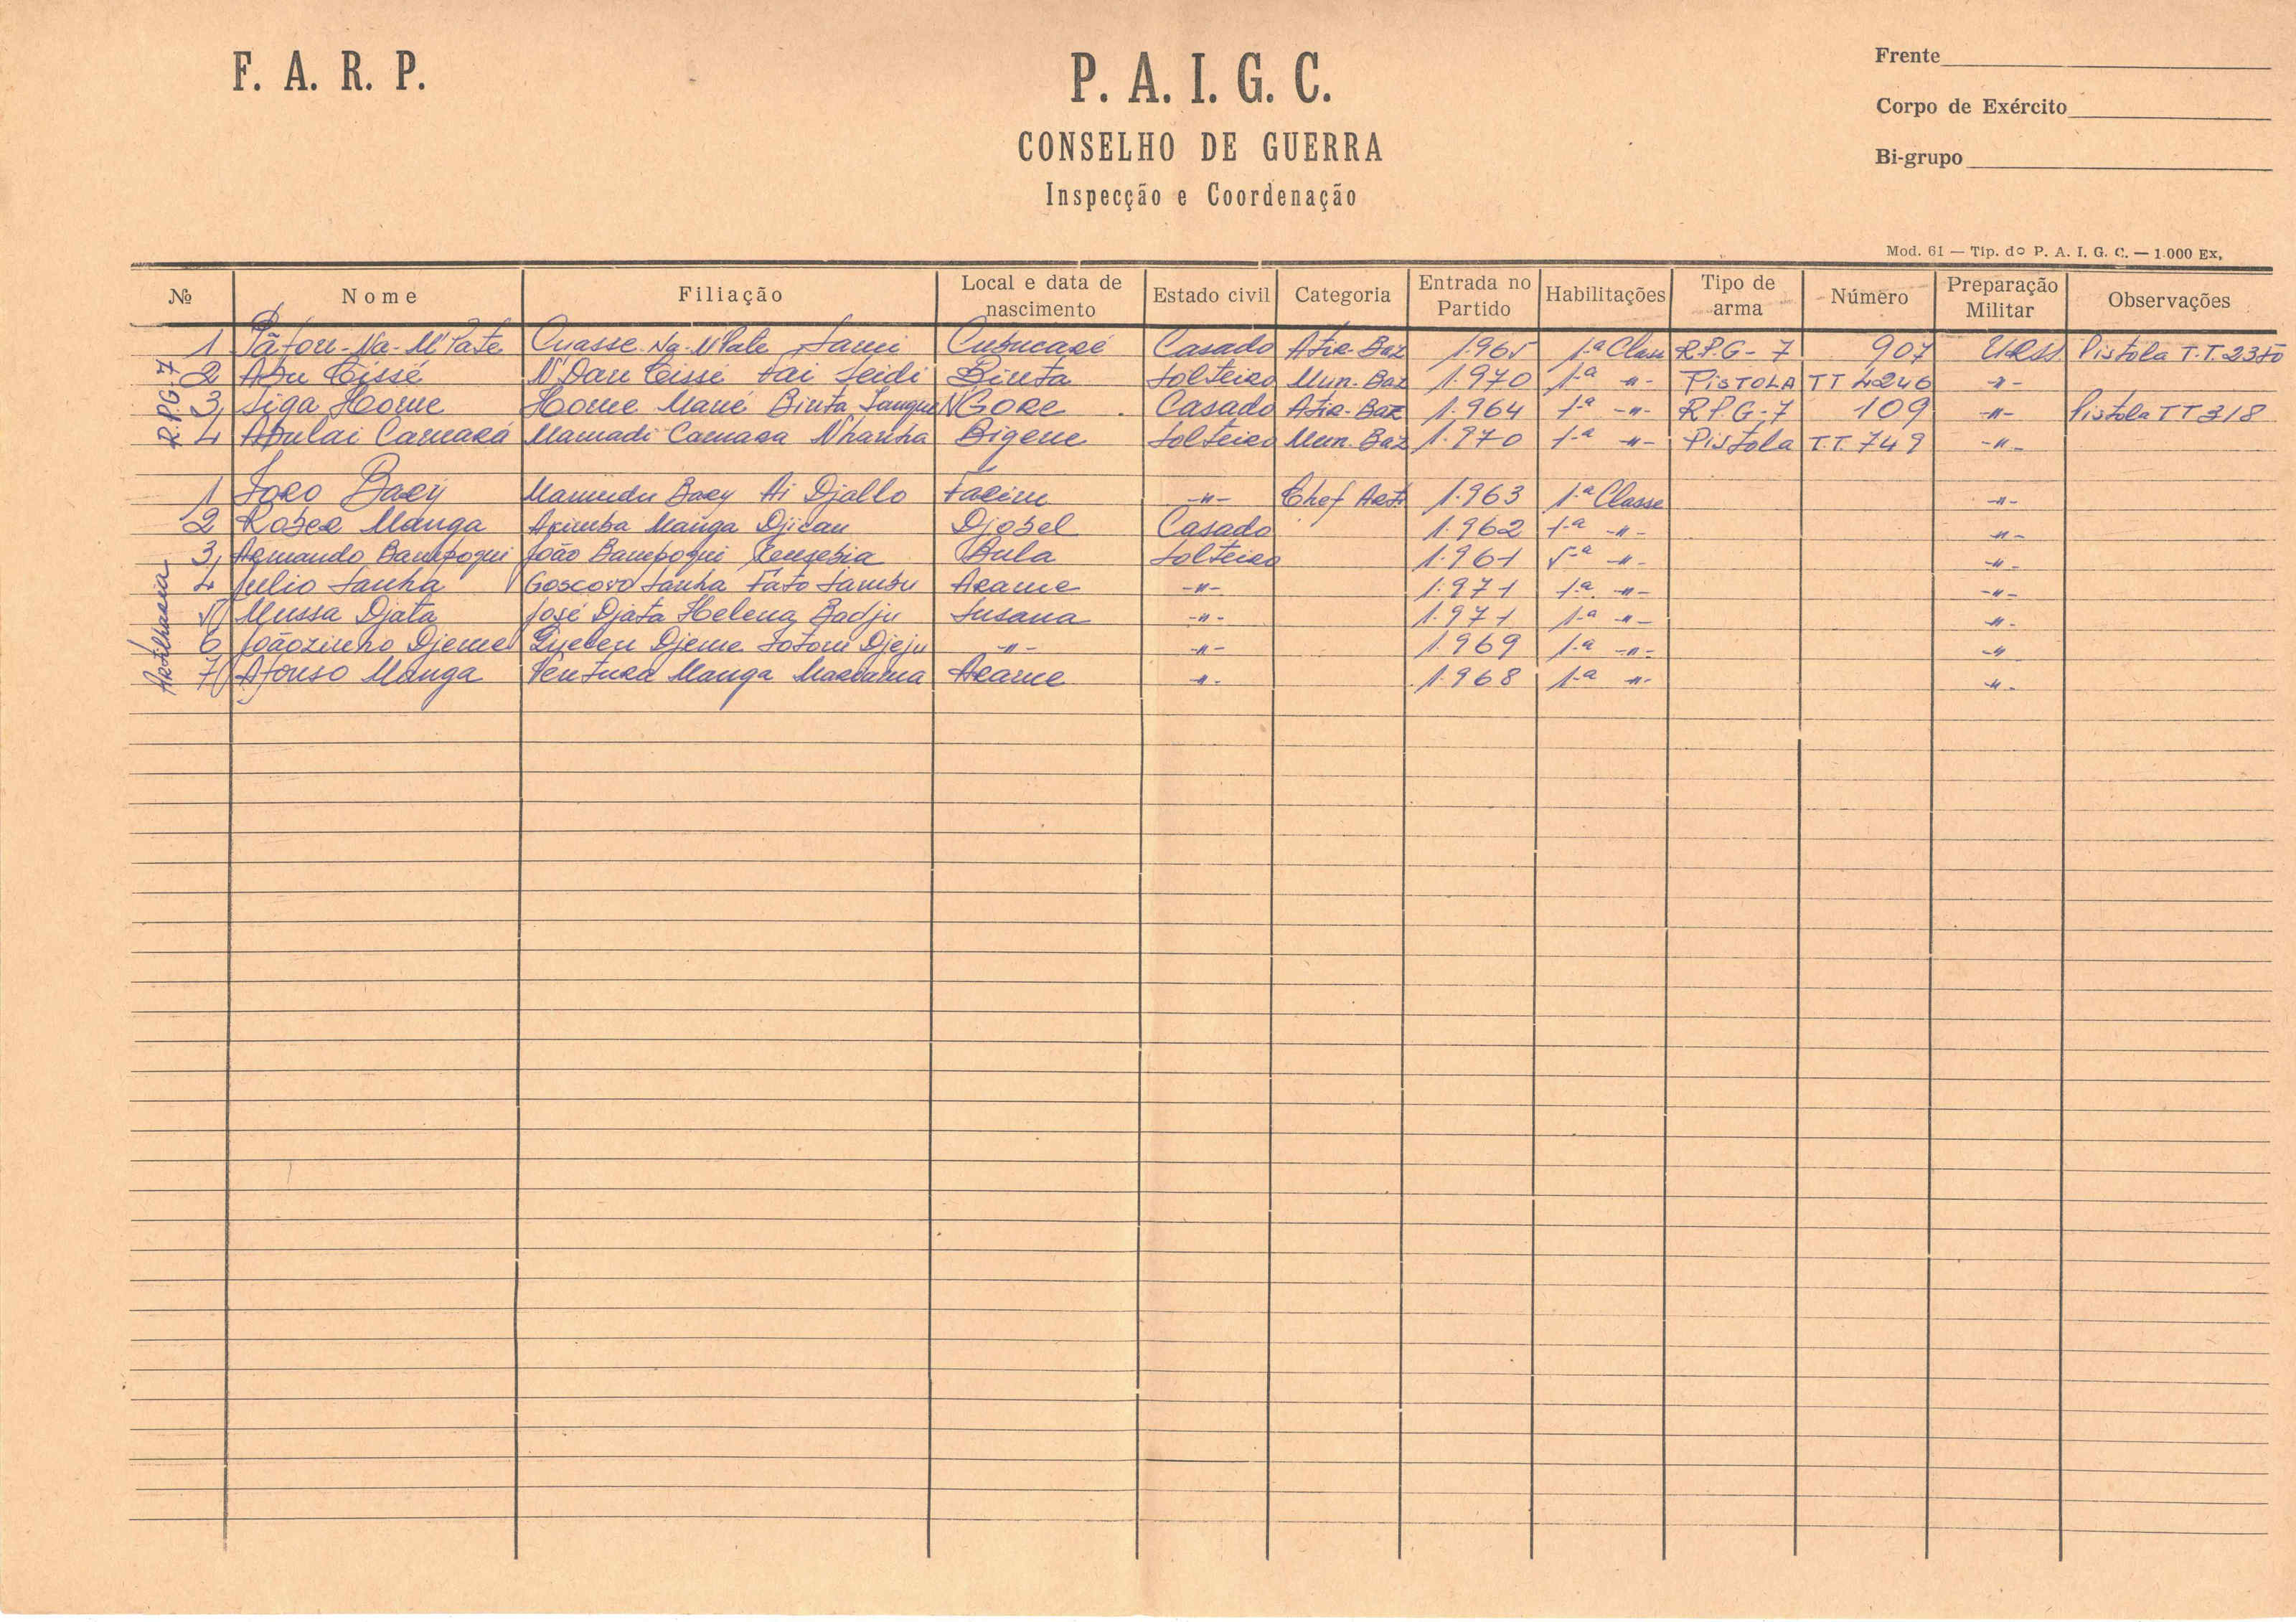 F. A. R. P.
P. A. I. G. C.
CONSELHO DE GUERRA
Inspecção e Coordenação
Frente
Corpo de Exército
Bi-grupo
Mod. 61 — Tip. do P. A. I. G. C. — 1.000 Ex,
№ Nome Filiação Local e data de nascimento Estado civil Categoria Entrada no Partido Habilitações Tipo de arma Número Preparação Militar Observações
R.P.G-7
1 Na-M'Pate Na-N'Pale Cubucaré Casado Atir-Baz 1.965 1.ª Clas R.P.G-7 907 URSS Pistola T.T. 2350
2 Abu Cissé N'Dau Cissé Seidi Binta Solteiro Mun-Baz 1.970 1.ª -"- PISTOLA TT 4246 -"-
3 Siga Home Home Mané Binta N'Gore Casado Atir-Baz 1.964 1.ª -"- R.P.G-7 109 -"- Pistola TT 318
4 Abulai Camará Mamadi Camara N'hanha Bigene Solteiro Mun-Baz 1.970 1.ª -"- Pistola T.T. 749 -"-
Artilharia
1 Soro Bary Mamudu Bary Ai Djallo Farim -"- Chef Art. 1.963 1.ª Classe -"-
2 Rober Manga Manga Djobel Casado 1.962 1.ª -"- -"-
3 Armando João Bula Solteiro 1.961 5.ª -"- -"-
4 Julio Sanha Sanha Fato Sambu Arame -"- 1.971 1.ª -"- -"-
5 Mussa Djata José Djata Helena Badju Susana -"- 1.971 1.ª -"- -"-
6 Joãozinho Djeme Djeme Djeju -"- -"- 1.969 1.ª -"- -"-
7 Afonso Manga Ventura Manga Arame -"- 1.968 1.ª -"- -"-